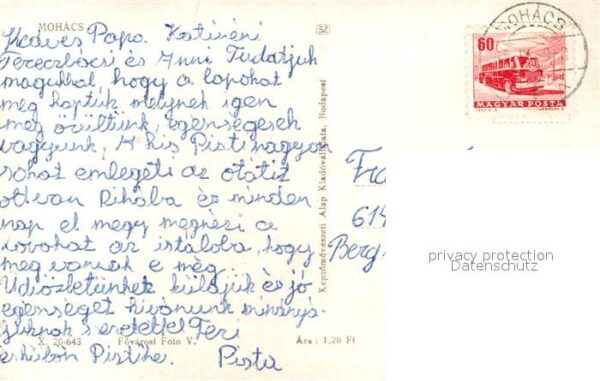 MOHÁCS
Kedves Papa Katinéni
Tereczbácsi és Anni Tudatjuk
magukkal, hogy a lapokat
meg kaptuk melynek igen
meg örültünk, egenségesek
vagyunk, A kis Pisti nagyon
sokat emlegeti az
ottvan Ruhába és minden
nap el megy megnézi a
lovakat az istáloba, hogy
meg vannak e még
Üdvözletünket küldjük és jó
egenséget kivánunk minnyá-
juknak szeretettel Teri
X. 20-643 Fővárosi Foto V. Ára: 1,20 Ft
Pistike. Pista
Képzőművészeti Alap Kiadóvállalata, Budapest
MOHÁCS
60
MAGYAR POSTA
Fra
614
Berg
privacy protection
Datenschutz